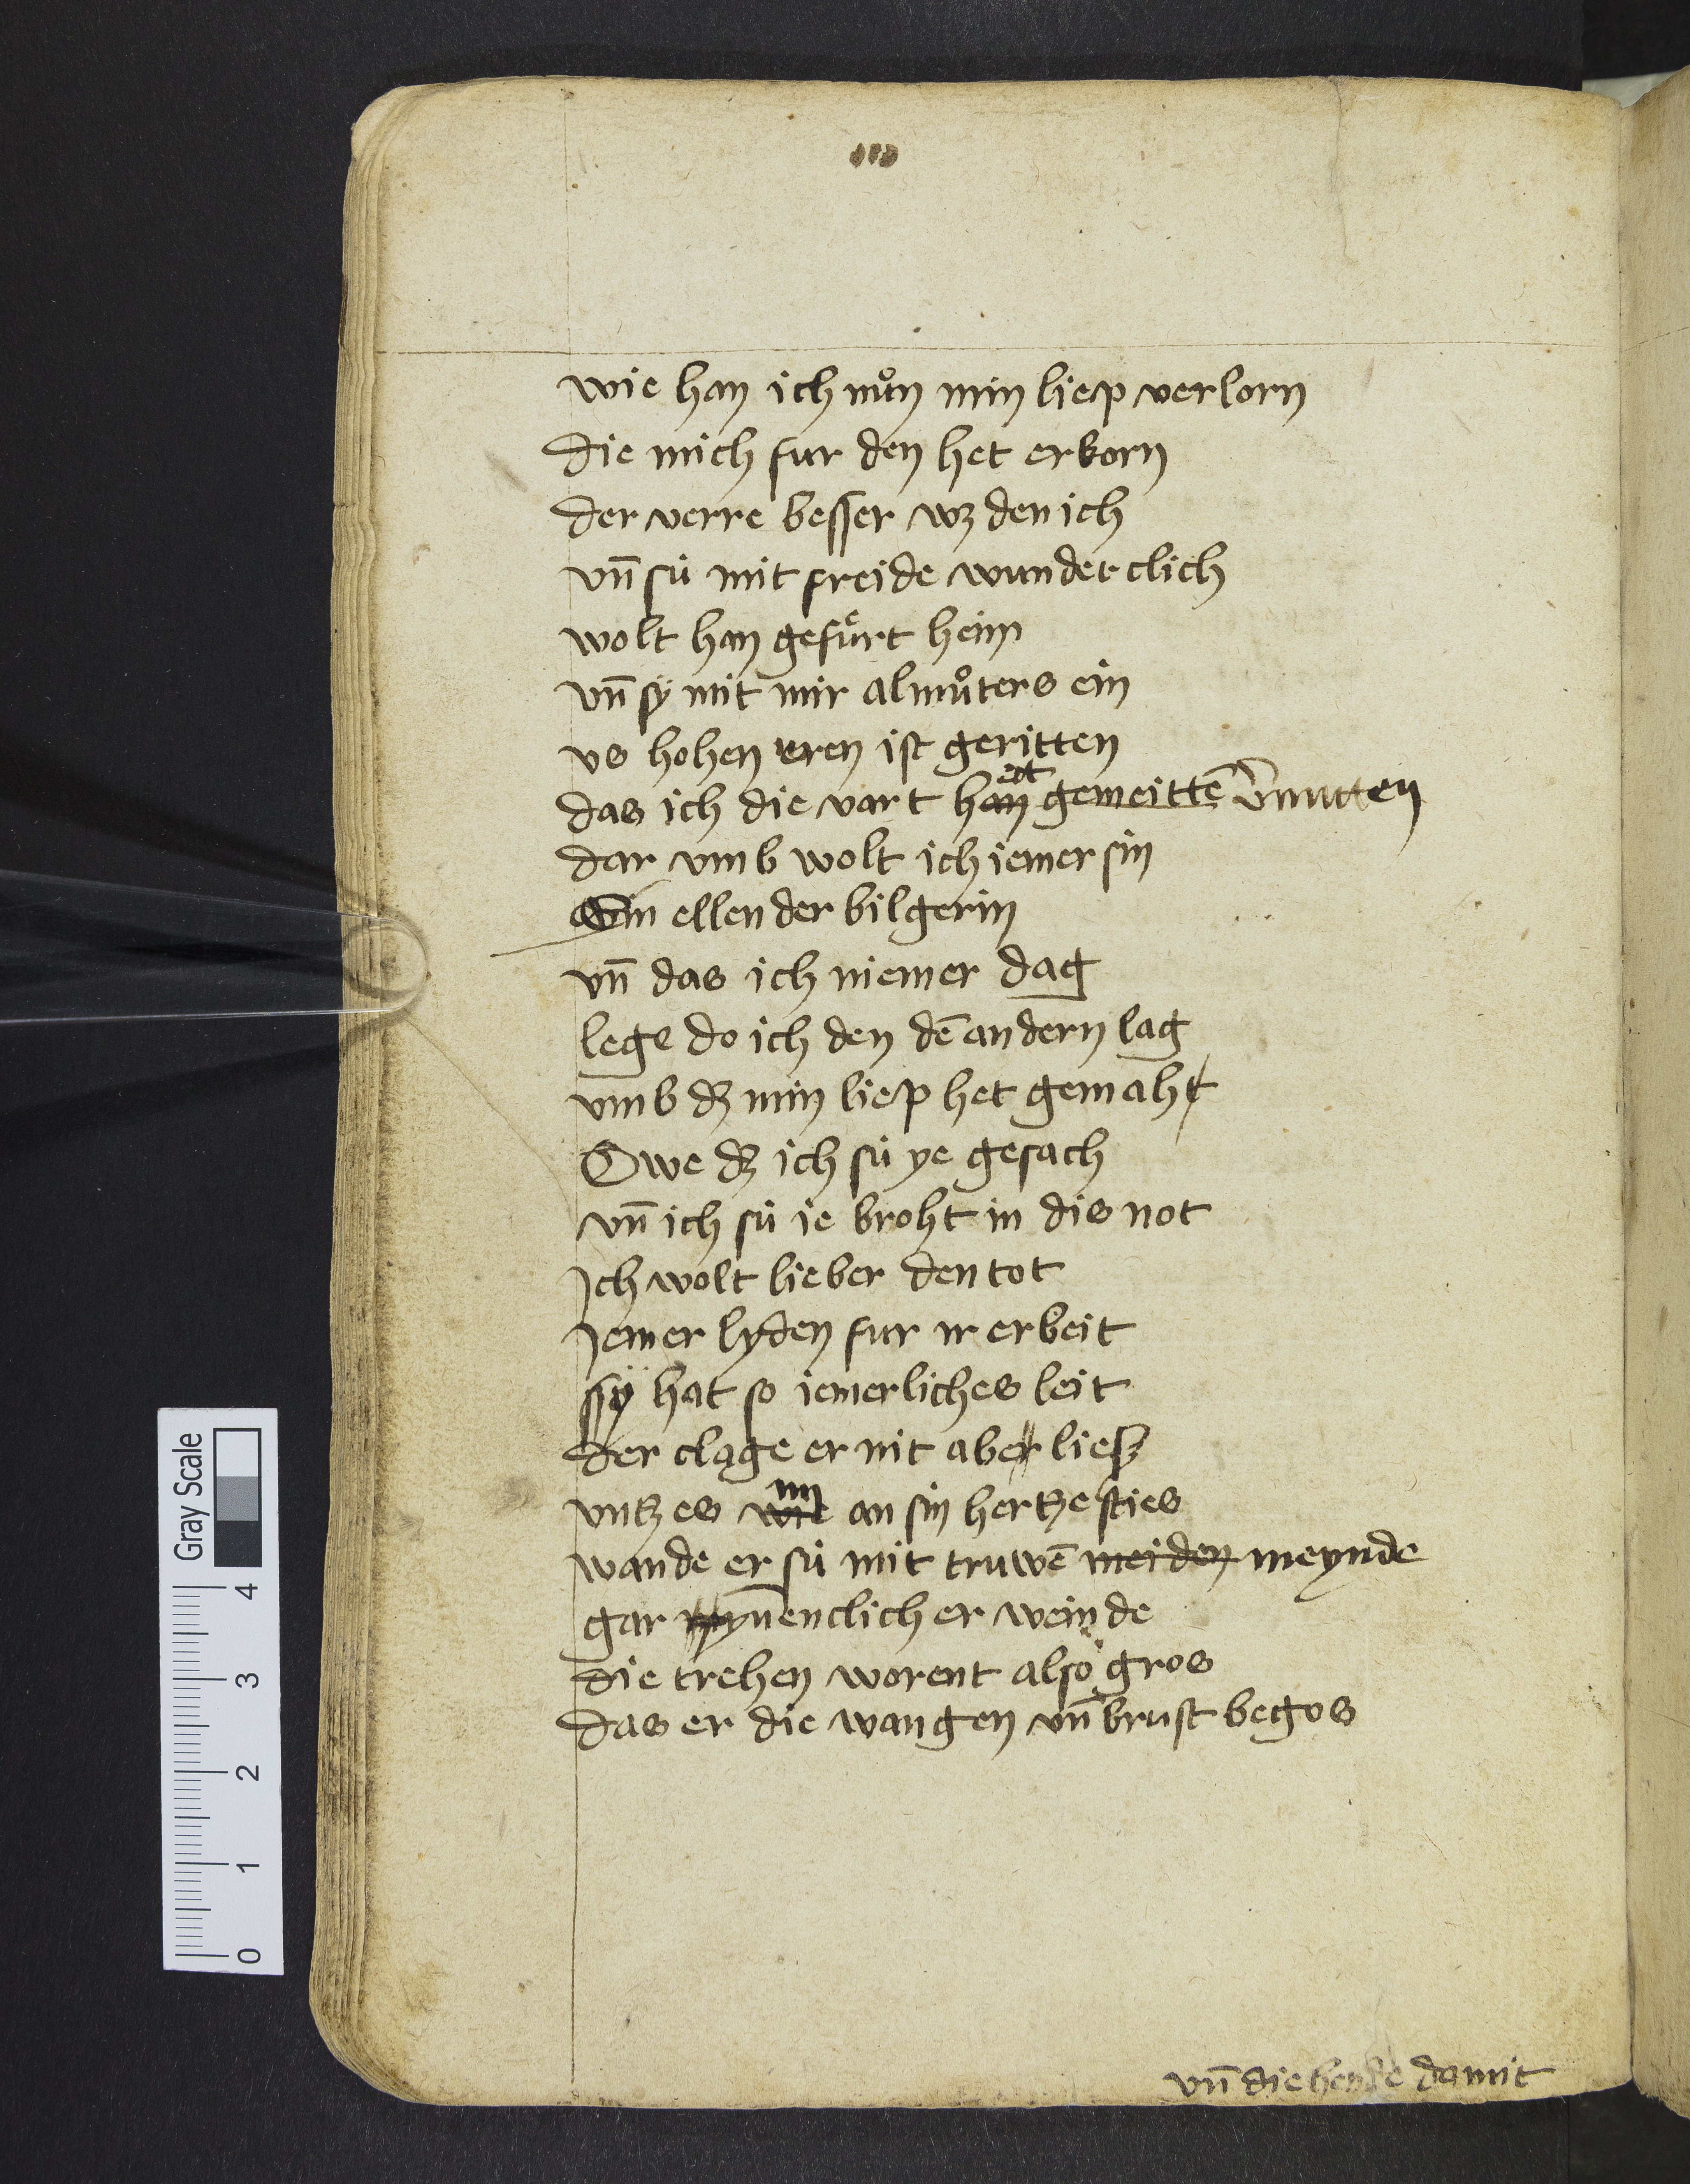 wie han ich nuͦn min liep verlorn
die mich fur den het erkorn
der verre besser wz den ich
vn̄ sú mit freide wunderclich
wolt han gefuͤrt heim
vn̄ sy mit mir almuͦters ein
vs hohen eren ist geritten
das ich die vart han ett gemeittē v̄mitten
dar vmb wolt ich iemer sin
Ein ellender bilgerin
vn̄ das ich niemer dag
lege do ich den dē andern lag
vmb dz min liep het gemaht
Owe dz ich sú ye gesach
vn̄ ich sú ie broht in dis not
Ich wolt lieber den tot
Iemer lyden fur ir erbeit
sÿ hat so iemerliches leit
der clage er nit aber liesz
vntz es wie im an sin hertze sties
wande er sú mit truwē meiden meynde
gar ynēnclich er weinde
die trehen worent also gros
das er die wangen vn̄ brust begos
vn̄ die hende damit
Gray Scale
0 1 2 3 4